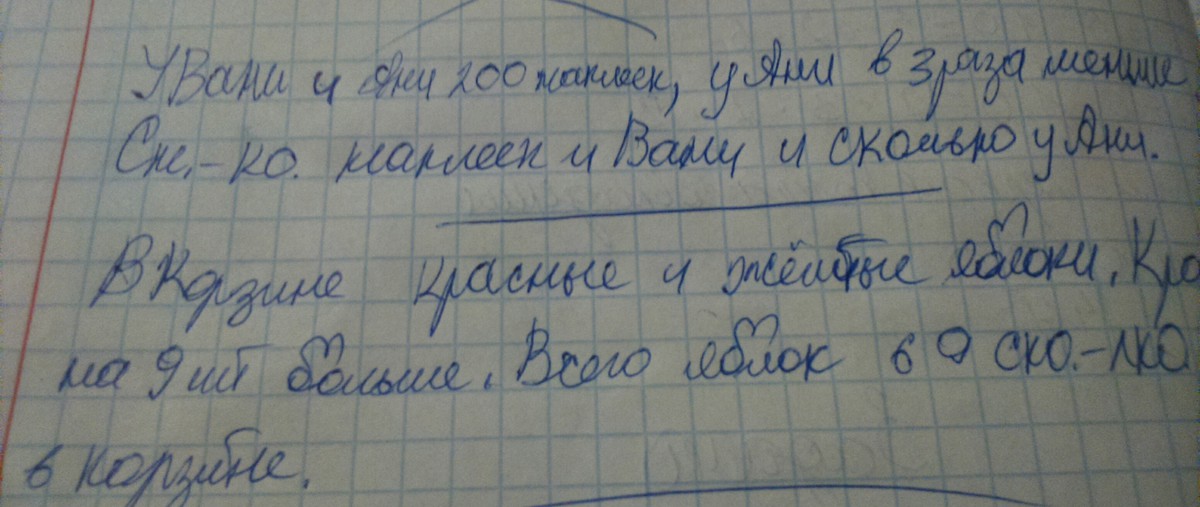 У Вани и Ани 200 наклеек, у Ани в 3 раза меньше
Ск.-ко. наклеек и Вани и сколько у Ани.
В Корзине красные и жёлтые яблоки. Кра
на 9 шт больше. Всего яблок 6 9 ско.-лко
в корзине.